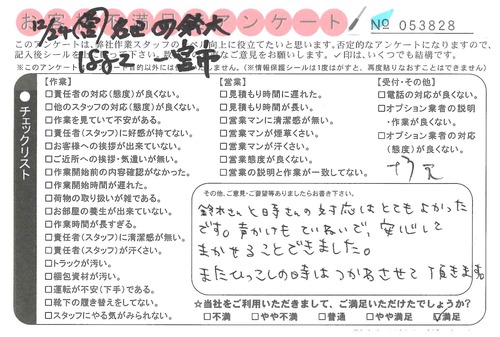 お客様不満足アンケート
№ 053828
このアンケートは、弊社作業スタッフのレベル向上に役立てたいと思います。否定的なアンケートになりますので、
記入後シールを
ご意見をお願いします。✓印は、いくつでも結構です。
※このアンケート
目的以外には
(※情報保護シールは1度はがすと、再度貼りなおすことはできません)
チェックリスト
【作業】
□責任者の対応(態度)が良くない。
□他のスタッフの対応(態度)が良くない。
□作業を見ていて不安がある。
□責任者(スタッフ)に好感が持てない。
□お客様への挨拶が出来ていない。
□ご近所への挨拶・気遣いが無い。
□作業開始前の内容確認がなかった。
□作業開始時間が遅れた。
□荷物の取り扱いが雑である。
□お部屋の養生が出来ていない。
□作業時間が長すぎる。
□責任者(スタッフ)に清潔感が無い。
□責任者(スタッフ)が汗くさい。
□トラックが汚い。
□梱包資材が汚い。
□運転が不安(下手)である。
□靴下の履き替えをしてない。
□スタッフにやる気がみられない。
【営業】
□見積もり時間に遅れた。
□見積もり時間が長い。
□営業マンに清潔感が無い。
□営業マンが煙草くさい。
□営業マンが汗くさい。
□営業態度が良くない。
□営業の説明と作業が一致してない。
【受付・その他】
□電話の対応が良くない。
□オプション業者の説明
・作業が良くない。
□オプション業者の対応
(態度)が良くない。
その他、ご意見・ご要望等ありましたらお書き下さい。
鈴木さんと日時さんの対応はとてもよかった
です。声かけもていねいで、安心して
まかせることできました。
またひっこしの時はつかわさせて頂きます。
☆当社をご利用いただきまして、ご満足いただけたでしょうか?
□不満 □やや不満 □普通 □やや満足 ☑満足